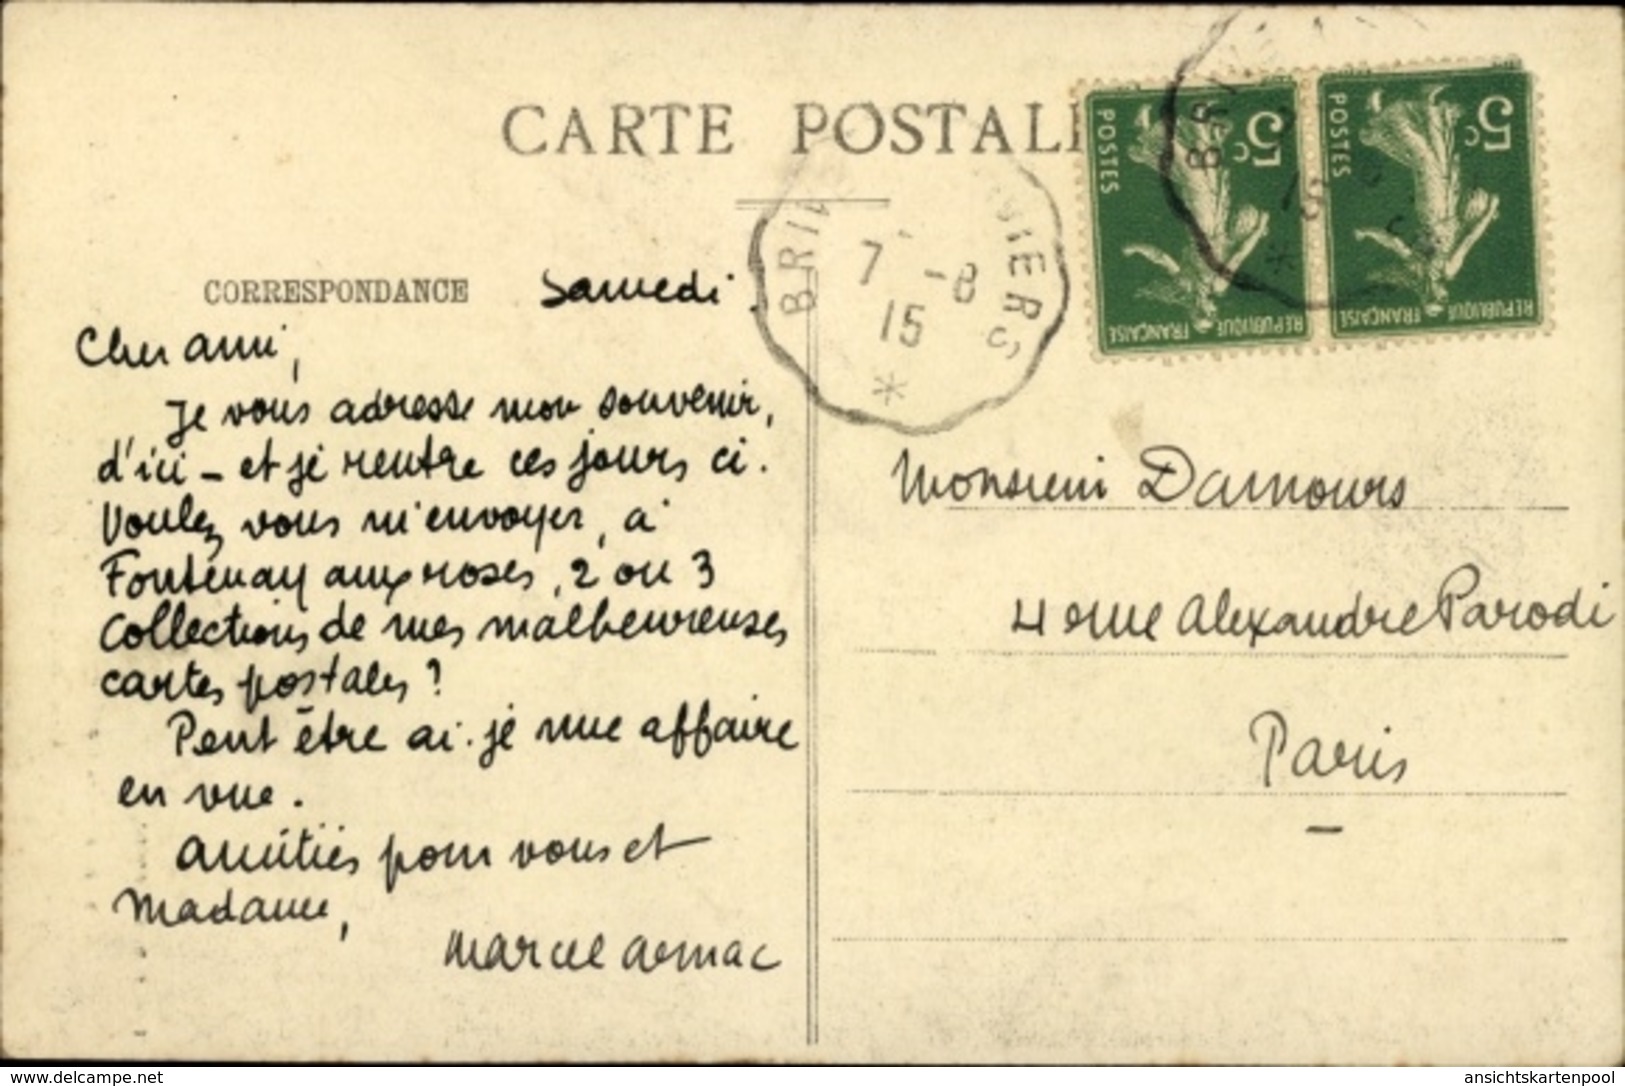 CARTE POSTALE
CORRESPONDANCE
Samedi.
Cher ami,
Je vous adresse mon souvenir,
d'ici – et je rentre ces jours ci.
Voulez vous m'envoyer, à
Fontenay aux roses, 2 ou 3
collections de mes malheureuses
cartes postales ?
Peut être ai-je une affaire
en vue.
Amitiés pour vous et
Madame,
Marcel Arnac
7 -8
15
*
5c
POSTES
REPUBLIQUE FRANÇAISE
5c
POSTES
REPUBLIQUE FRANÇAISE
Monsieur Damours
4 rue Alexandre Parodi
Paris
www.delcampe.net
ansichtskartenpool